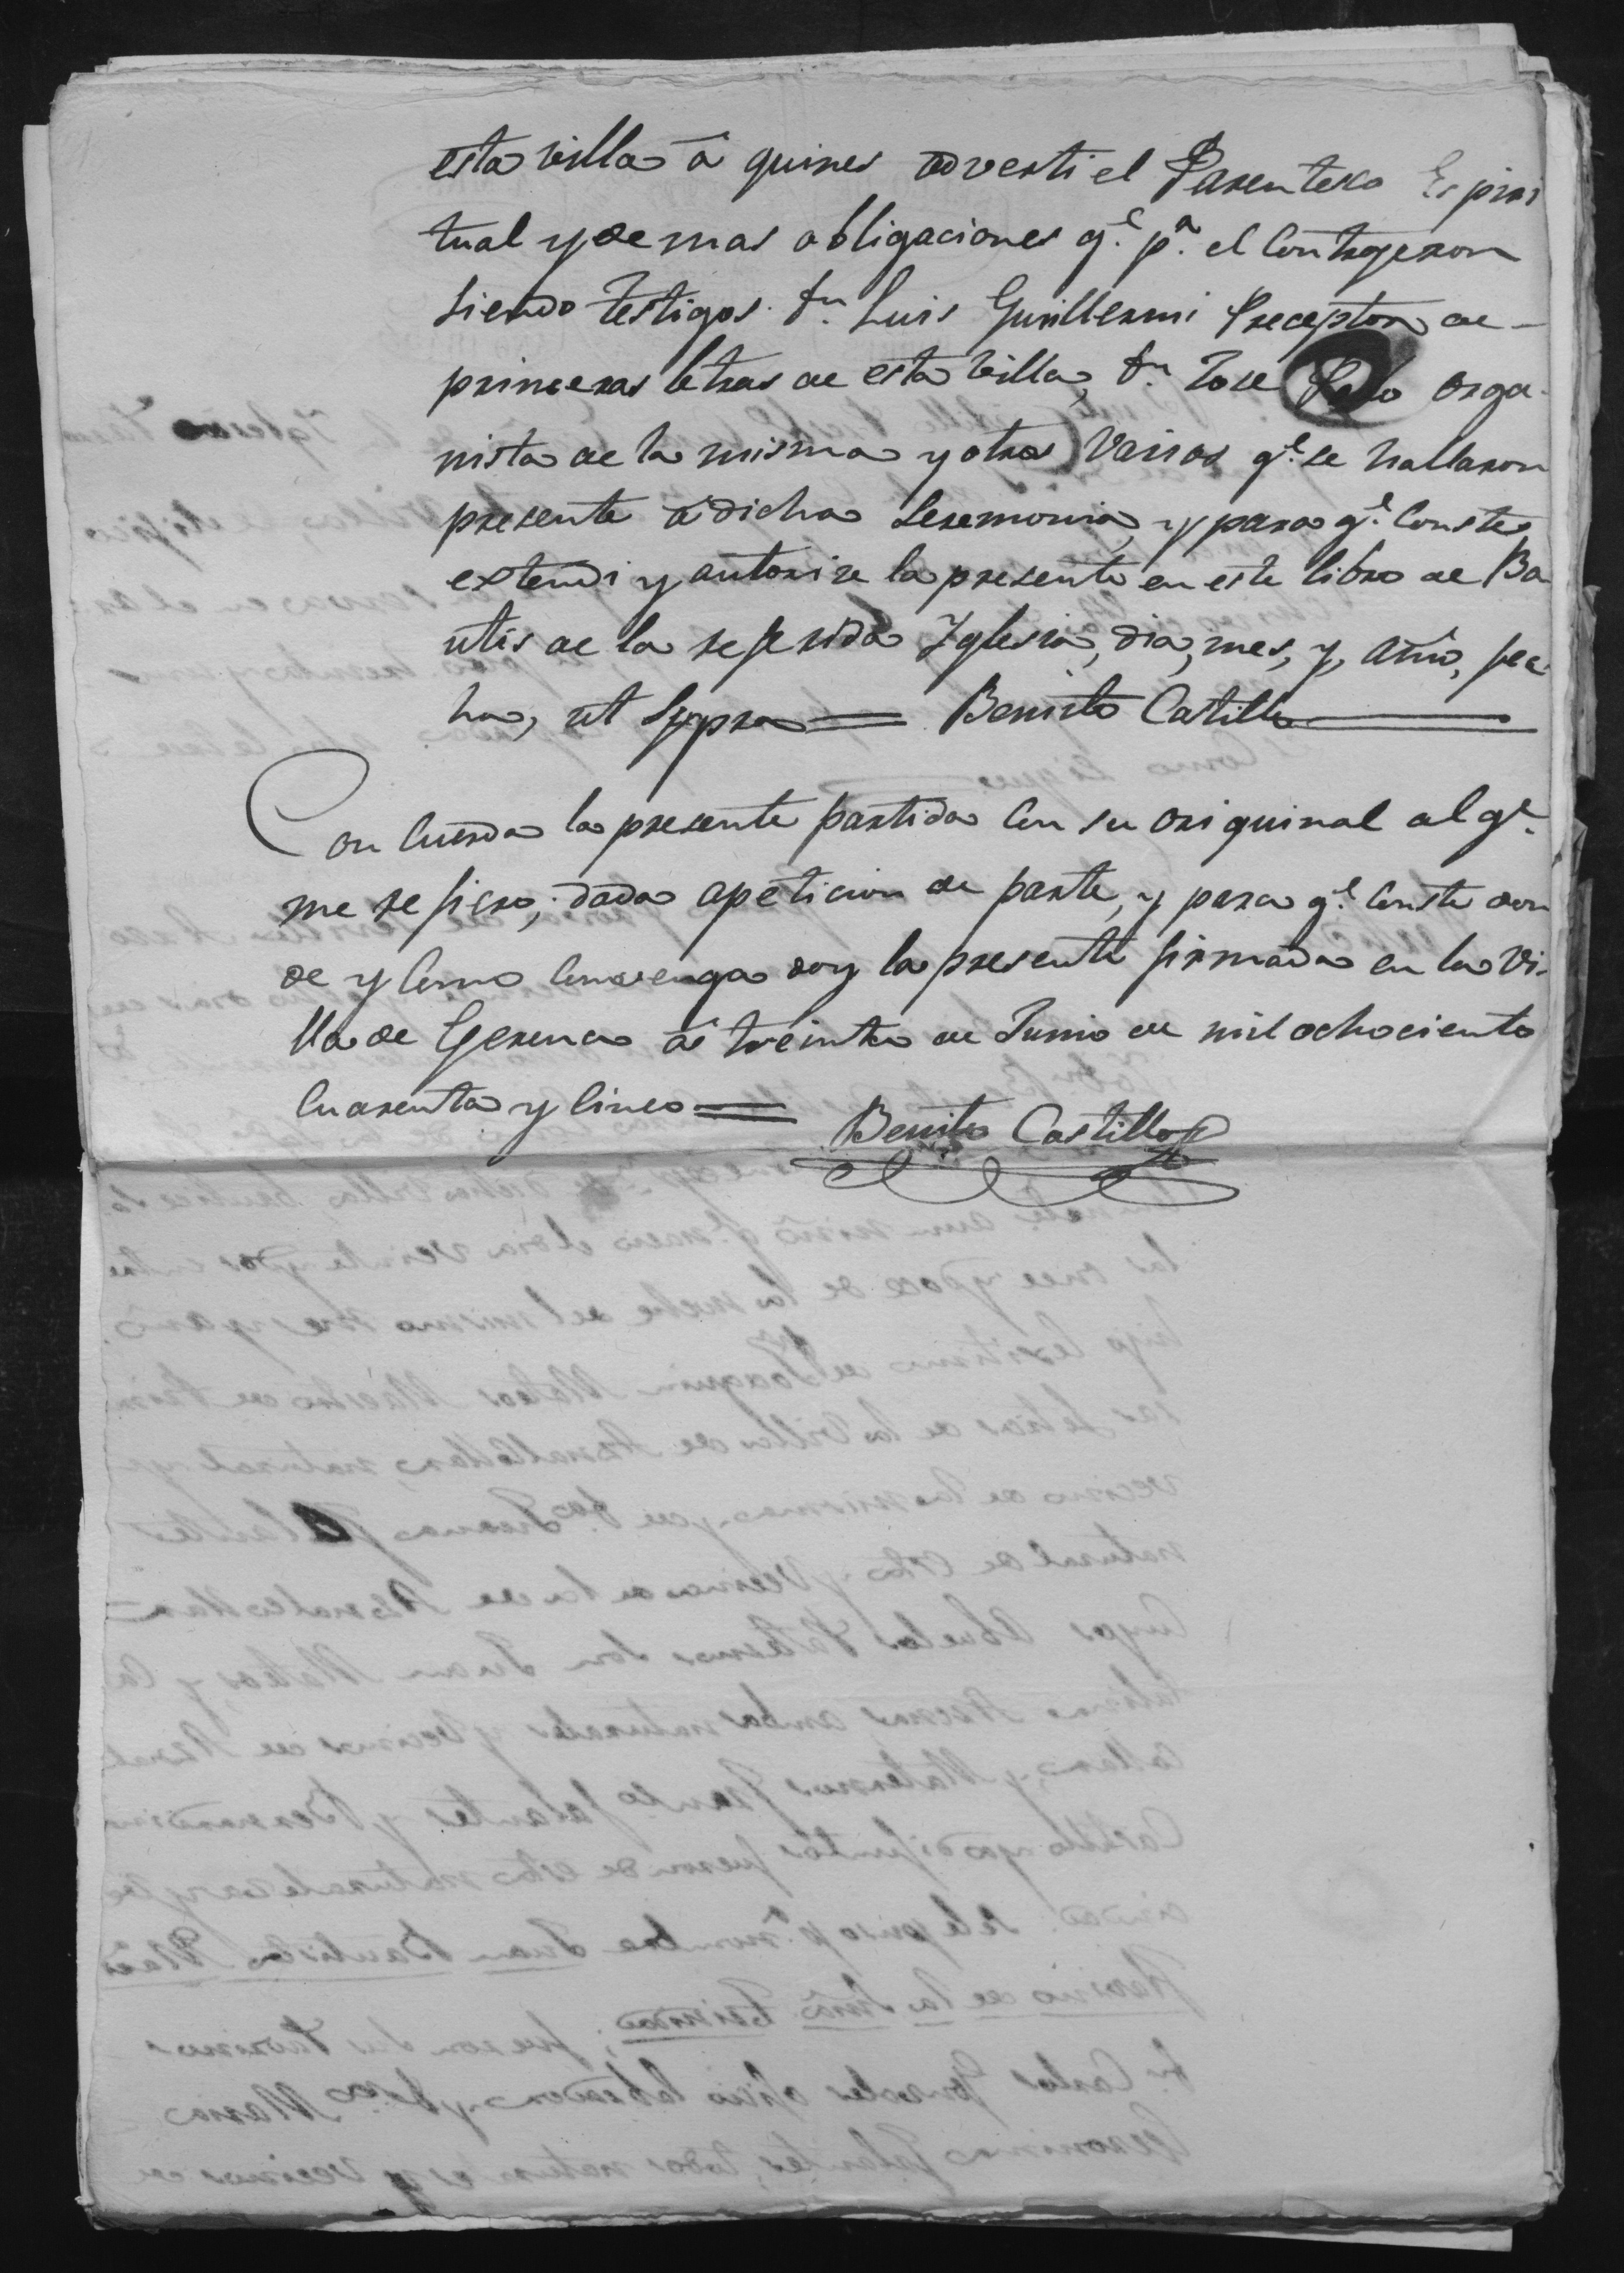 esta villa á quines adverti el Parentesco Espiri
tual y demas obligaciones q.e p.r el Contrageron
siendo testigos D.n Luis Guillermi Preceptor de
primeras letras de esta Villa, D.n Jose orga-
nista de la misma y otros Varios q.e se hallaron
presente á dicha seremonia, y para q.e Conste
extendi y autorise la presente en este libro de Ba
utis de la referida Yglesia, dia, mes, y, año, fec-
ha, ut Suppra = Benito Castillo
Con Cuerda la presente partida Con su origuinal al q.e
me refiero; dada apeticion de parte, y para q.e Conste don
de y Como Convenga doy la presente firmada en la Vi-
lla de Gerena á treinta de Junio de mil ochociento
Cuarenta y Cinco =
Benito Castillo